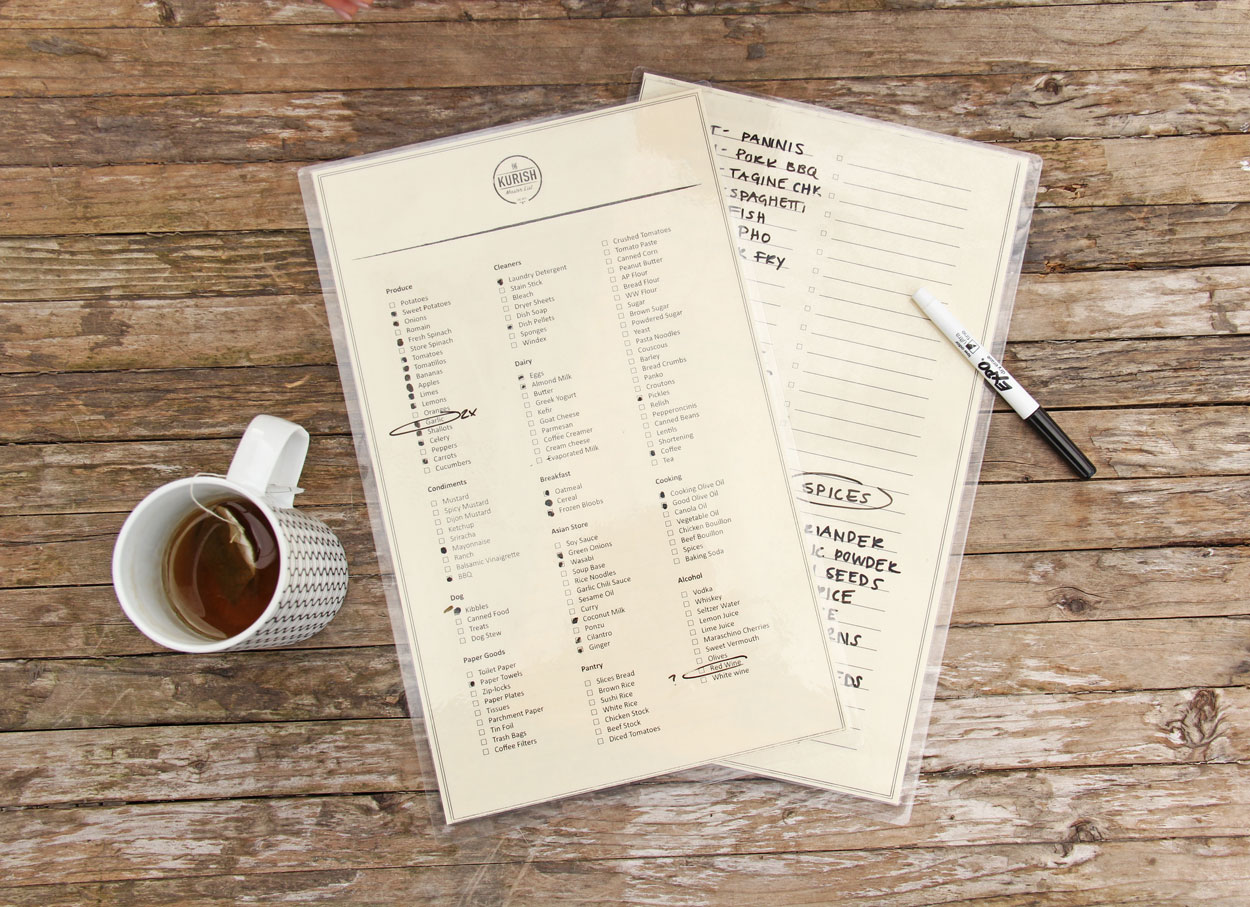 THE
KURISH
Master List
Produce
Potatoes
Sweet Potatoes
Onions
Romain
Fresh Spinach
Store Spinach
Tomatoes
Tomatillos
Bananas
Apples
Limes
Lemons
Oranges
Garlic 2x
Shallots
Celery
Peppers
Carrots
Cucumbers
Condiments
Mustard
Spicy Mustard
Dijon Mustard
Ketchup
Sriracha
Mayonnaise
Ranch
Balsamic Vinaigrette
BBQ
Dog
Kibbles
Canned Food
Treats
Dog Stew
Paper Goods
Toilet Paper
Paper Towels
Zip-locks
Paper Plates
Tissues
Parchment Paper
Tin Foil
Trash Bags
Coffee Filters
Cleaners
Laundry Detergent
Stain Stick
Bleach
Dryer Sheets
Dish Soap
Dish Pellets
Sponges
Windex
Dairy
Eggs
Almond Milk
Butter
Greek Yogurt
Kefir
Goat Cheese
Parmesan
Coffee Creamer
Cream cheese
Evaporated Milk
Breakfast
Oatmeal
Cereal
Frozen Bloobs
Asian Store
Soy Sauce
Green Onions
Wasabi
Soup Base
Rice Noodles
Garlic Chili Sauce
Sesame Oil
Curry
Coconut Milk
Ponzu
Cilantro
Ginger
Pantry
Slices Bread
Brown Rice
Sushi Rice
White Rice
Chicken Stock
Beef Stock
Diced Tomatoes
Crushed Tomatoes
Tomato Paste
Canned Corn
Peanut Butter
AP Flour
Bread Flour
WW Flour
Sugar
Brown Sugar
Powdered Sugar
Yeast
Pasta Noodles
Couscous
Barley
Bread Crumbs
Panko
Croutons
Pickles
Relish
Pepperoncinis
Canned Beans
Lentils
Shortening
Coffee
Tea
Cooking
Cooking Olive Oil
Good Olive Oil
Canola Oil
Vegetable Oil
Chicken Bouillon
Beef Bouillon
Spices
Baking Soda
Alcohol
Vodka
Whiskey
Seltzer Water
Lemon Juice
Lime Juice
Maraschino Cherries
Sweet Vermouth
Olives
? Red Wine
White wine
T - PANINIS
- PORK BBQ
- TAGINE CHK
- SPAGHETTI
FISH
PHO
FRY
SPICES
IANDER
POWDER
SEEDS
ICE
E
RNS
EDS
EXPO